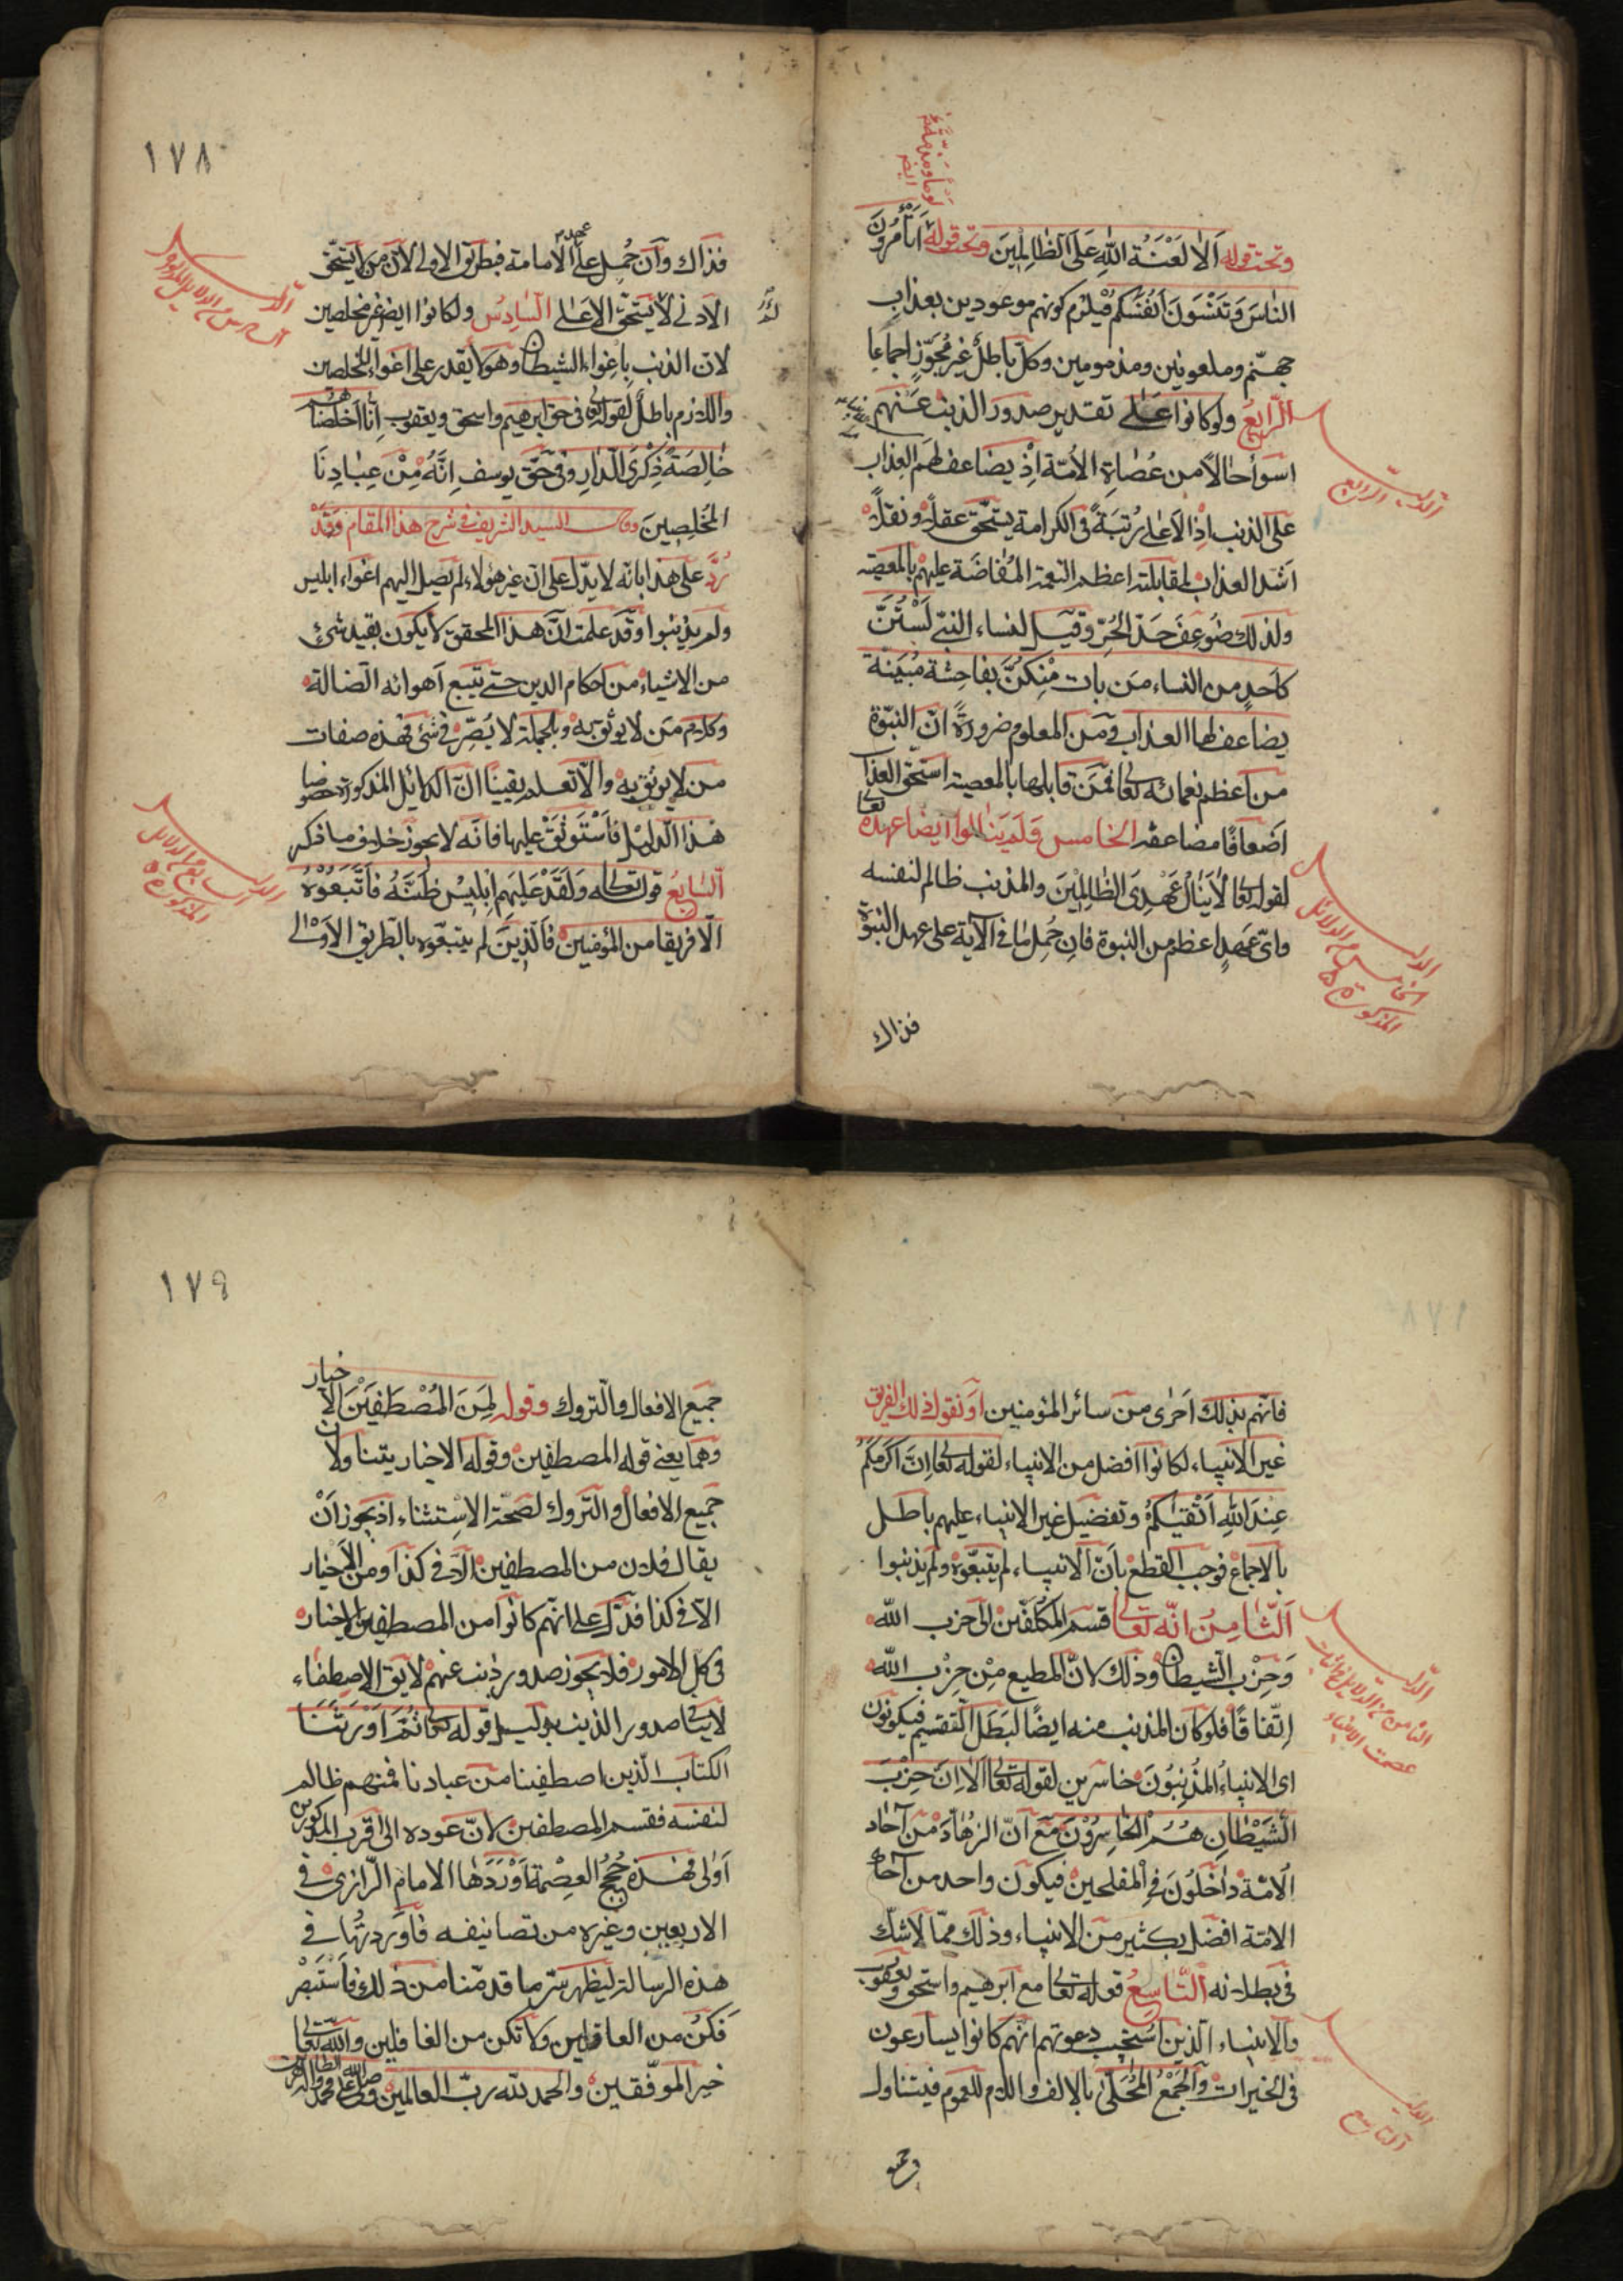 وتحت قوله اَلا لَعْنَةُ اللهِ عَلَى الظَّالِمِينَ وتحت قوله اَتَأْمُرُونَ
النَّاسَ وَتَنْسَوْنَ اَنْفُسَكُمْ فيلزم كونهم موعودين بعذاب
جهنّم وملعونين ومذمومين وكلّ باطلٌ غير مُجَوَّزٍ اجماعا
الرّابعُ ولو كانوا على تقدير صدور الذنب عنهم
اسوأ حالاً من عُصاة الأمّة اِذْ يضاعف لهم العذاب
على الذنب اِذِ الاَعلى رُتبَةً فى الكرامة يستحّق عقلاً ونقلاً
اَشدّ العذاب لمقابلته اعظم النعمة المُفاضَة عليهم بالمعصية
ولذلك ضُوعِفَ حَدّ الحُرّ وقيل لنساء النبّي لَسْتُنَّ
كَاَحَدٍ من النساء مَن يات مِنْكنَّ بِفاحِشةٍ مُبَيّنَة
يضاعف لها العذاب ومن المعلوم ضرورةً انّ النبّوة
من اعظم نعمائه تعالى فمَن قابلها بالمعصية استحقّ العذاب
اَضعافًا مضاعفة الخامس ولم ينالوا ايضا عهده تعالى
لقوله تعالى لا يَنالُ عَهْدِى الظَّالِمِينَ والمذنب ظالم لنفسه
واىّ عَهدٍ اعظم من النبوة فاِن حُمِل ما فى الآية على عهد النبوّة
فذاك
الدليل الرابع
الدليل الخامس من الدلائل المذكورة
١٧٨
فذاك وَاَن حُمِل على عهد الامامة فبطريق الاولى لاَنّ من لا يستحّق
الادنى لا يستحّق الاعلى السّادِسُ ولكانوا ايضا غير مخلصين
لانّ الذنب بِاِغواء الشيطان وهو لا يقدر على اغواء المخلصين
واللازم باطلٌ لقوله تعالى فى حق ابرهيم واسحق ويعقوب اِنّا اَخْلَصْنَاهُمْ
بِخَالِصَةٍ ذِكْرَى الدّارِ وفى حقّ يوسف اِنَّهُ مِنْ عِبَادِنَا
المُخْلَصِينَ وقال السيد الشريف فى شرح هذا المقام وَقَدْ
رُدَّ على هذا بانّه لا يدّل على انّ غير هؤلاء لم يصل اليهم اغواء ابليس
ولم يذنبوا وقد علمت انّ هذا المحقق لا يكون بقيد شئ
من الاشياء من احكام الدين حتى يتّبع اَهوائه الضالة
وكلام مَن لا يوثق به وبالجملة لا يُضِرّه فى شئ فهذه صفات
من لا يوثق به والا تعلم يقينًا انّ الدلائل المذكورة خصوصا
هذا الدليل فاَسْتَوثِقْ عليها فانّه لا يجوز خلاف ما ذكر
السّابعُ قوله تعالى وَلَقَدْ صَدَّقَ عَلَيهِم اِبْلِيسُ ظَنَّهُ فَاتَّبَعُوْهُ
الّا فريقا من المؤمنين فَالّذِينَ لم يتبعّوه بالطريق الاَوْلى
الدليل السادس من الدلائل المذكورة
الدليل السابع من الدلائل المذكورة
فانّهم بذلك اَحْرى من سائر المؤمنين اَو نقول ذلك الفريق
غير الانبياء لكانوا افضل من الانبياء لقوله تعالى اِنَّ اَكْرَمَكُمْ
عِنْدَ اللهِ اَتْقَيٰكُمْ وتفضيل غير الانبياء عليهم باطل
بالاجماع فوجب القطع باَنّ الانبياء لم يتبعّوه ولم يذنبوا
اَلثّامِنُ انّه تعالى قسم المكلّفين الى حزب الله
وَحِزْبِ الشيطان وذلك لانّ المطيع مِن حِزْب الله
اِتّفاقًا فلو كان المذنب منه ايضًا لبَطَل التّقسيم فيكونون
اى الانبياءُ المُذْنِبُونَ خاسرين لقوله تعالى اَلا اِنَّ حِزْبَ
الشَيْطانِ هُمُ الخَاسِرُوْنَ مَعَ اَنّ الزهّادَ مِنْ آحاد
الامّة داخلون فى المفلحين فيكون واحد من آحاد
الامّة افضل بكثير من الانبياء وذلك ممّا لا شكّ
فى بطلانه التّاسِعُ قوله تعالى مع ابرهيم واسحق ويعقوب
والانبياء الذين استجيب دعوتهم انّهم كانوا يسارعون
فى الخيرات والجَمْعُ المُحَلّى بالالف واللام للعموم فيتناول
الدليل الثامن من الدلائل على اثبات عصمت الانبياء
الدليل التاسع
١٧٩
جميع الافعال والتّروك وقوله لَمِنَ المُصْطَفَيْنَ الاَخيار
وهما يعنى قوله المصطفين وقوله الاخيار يتناولان
جميع الافعال والتّروك لصحّة الاِستثناء اذ يجوز اَنْ
يقال فلان من المصطفين الاّ فى كذا ومن الاَخيار
الاّ فى كذا فدّل على انّهم كانوا من المصطفين الاخيار
فى كلّ الامور فلا يجوز صدور ذنب عنهم لا يق الاِصطفاء
لا ينافى صدور الذنب بدليل قوله تعالى ثُمَّ اَوْرَثْنَا
الكتاب الّذين اصطفينا من عبادنا فمنهم ظالم
لنفسه فقسم المصطفين لانّ عوده الى اَقْرب المذكورين
اَولى فهذه حُجَجُ العِصْمة اَوْرَدَها الامام الرّازى فى
الاربعين وغيره من تصانيفه فاَوردتُها فى
هذه الرسالة ليظهر سرّ ما قدمّنا من ذلك فاسْتَبْصِرْ
فكُنْ من العاقلين ولا تكن من الغافلين والله تعالى
خير الموفّقين والحمد لله ربّ العالمين وصلى الله على محمد وآله